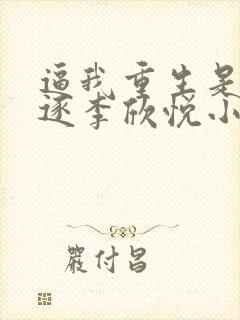 逼我重生是
逐李欣悦小
严付昌